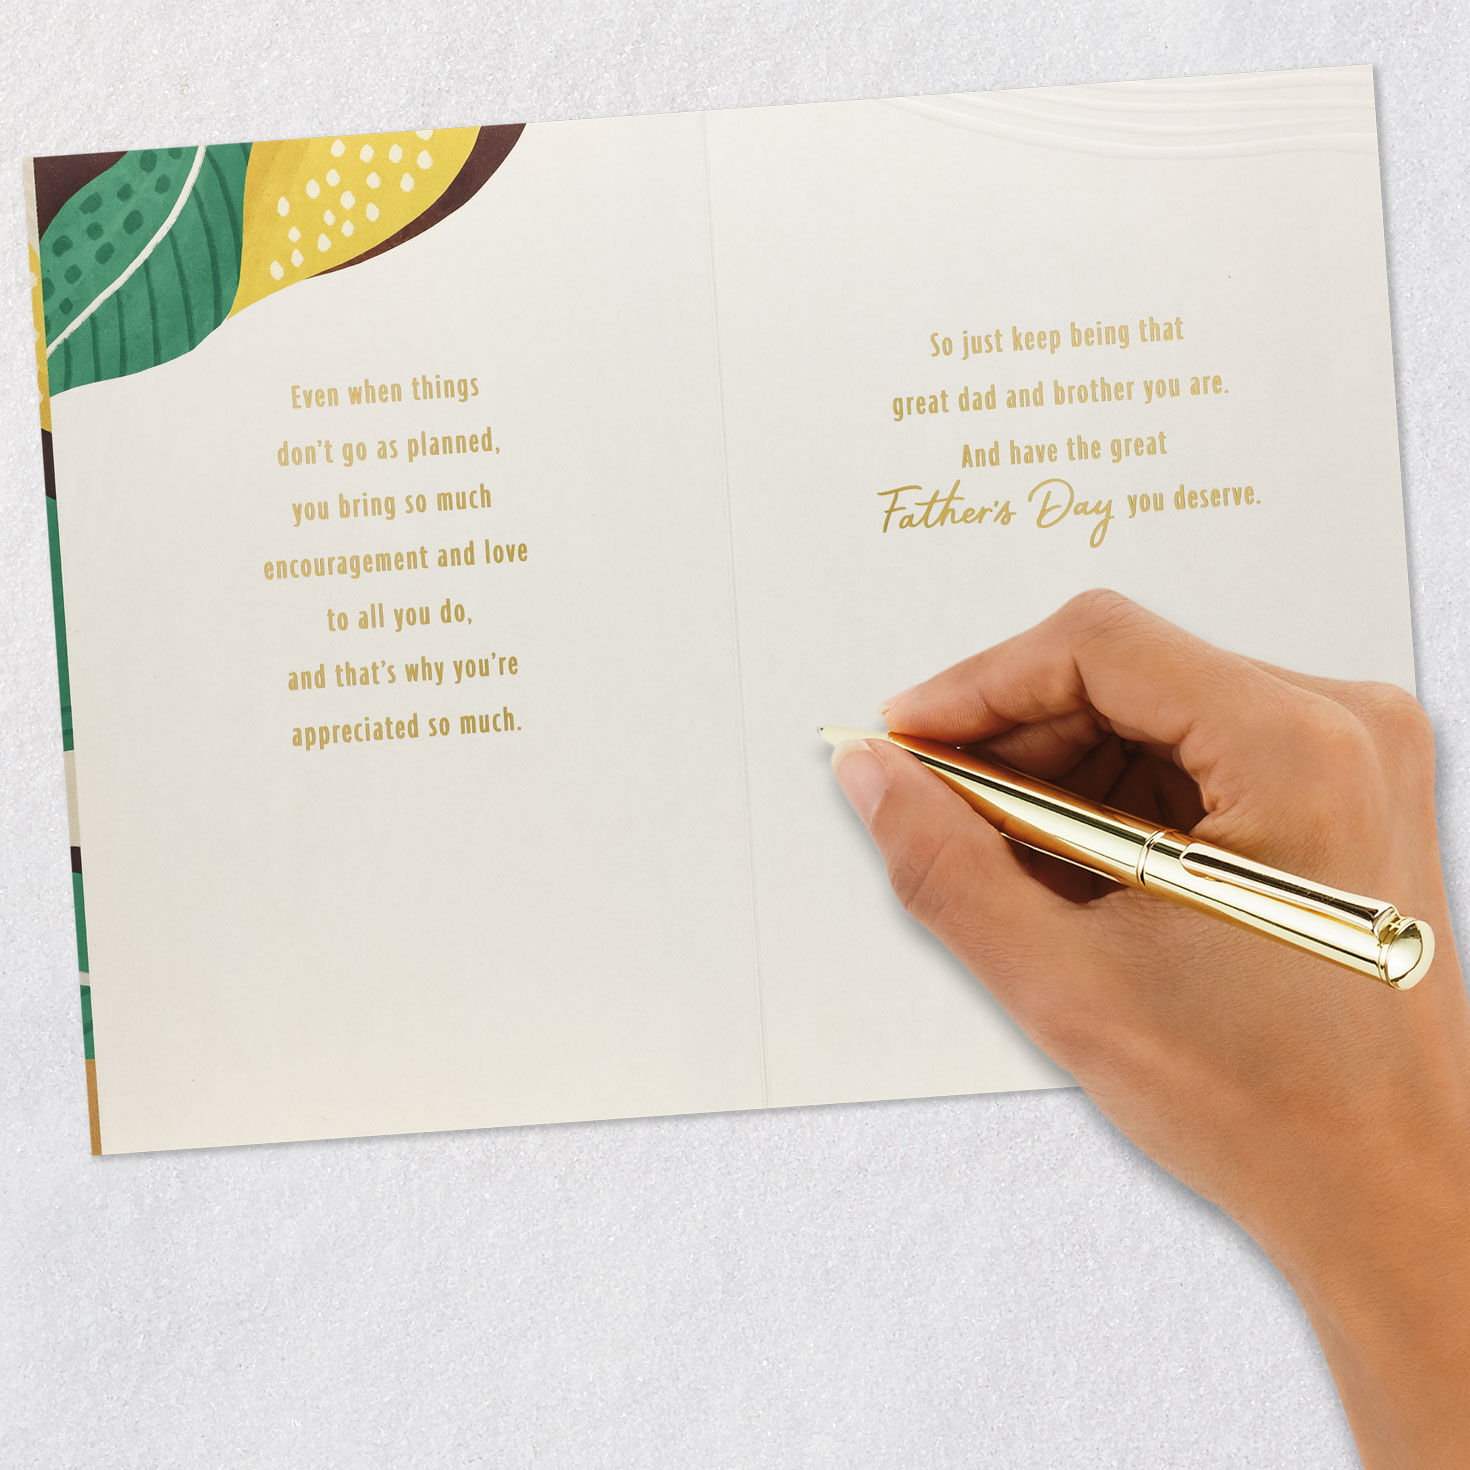 Even when things
don't go as planned,
you bring so much
encouragement and love
to all you do,
and that's why you're
appreciated so much.
So just keep being that
great dad and brother you are.
And have the great
Father's Day you deserve.